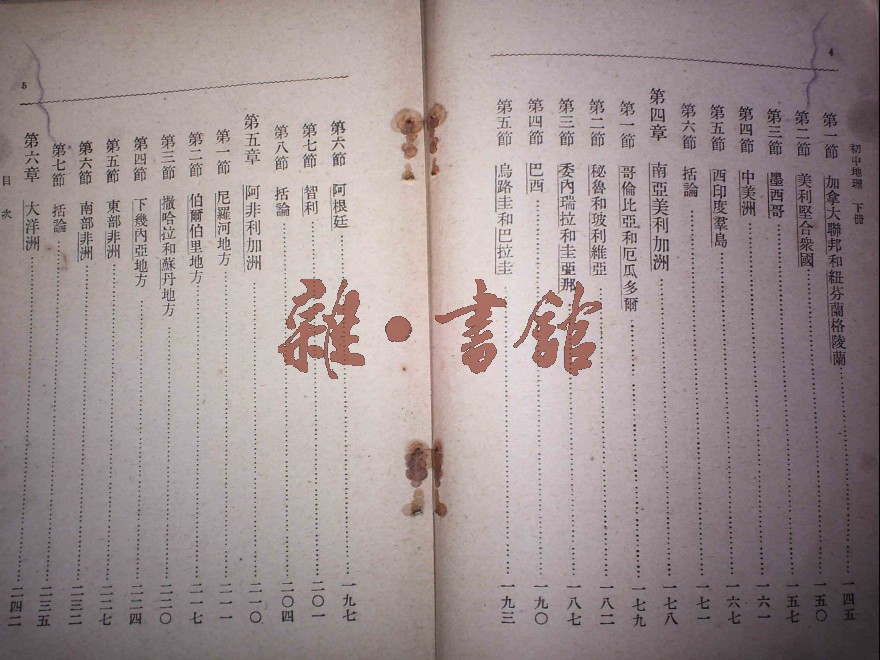 4
初中地理 下冊
第一節 加拿大聯邦和紐芬蘭格陵蘭 一四五
第二節 美利堅合衆國 一五〇
第三節 墨西哥 一五七
第四節 中美洲 一六一
第五節 西印度羣島 一六七
第六節 括論 一七一
第四章 南亞美利加洲 一七八
第一節 哥倫比亞和厄瓜多爾 一七九
第二節 秘魯和玻利維亞 一八二
第三節 委內瑞拉和圭亞那 一八七
第四節 巴西 一九〇
第五節 烏路圭和巴拉圭 一九三
5
第六節 阿根廷 一九七
第七節 智利 二〇一
第八節 括論 二〇四
第五章 阿非利加洲 二一〇
第一節 尼羅河地方 二一一
第二節 伯爾伯里地方 二一七
第三節 撒哈拉和蘇丹地方 二二〇
第四節 下幾內亞地方 二二四
第五節 東部非洲 二二七
第六節 南部非洲 二三二
第七節 括論 二三五
第六章 大洋洲 二四二
目次
雜·書館